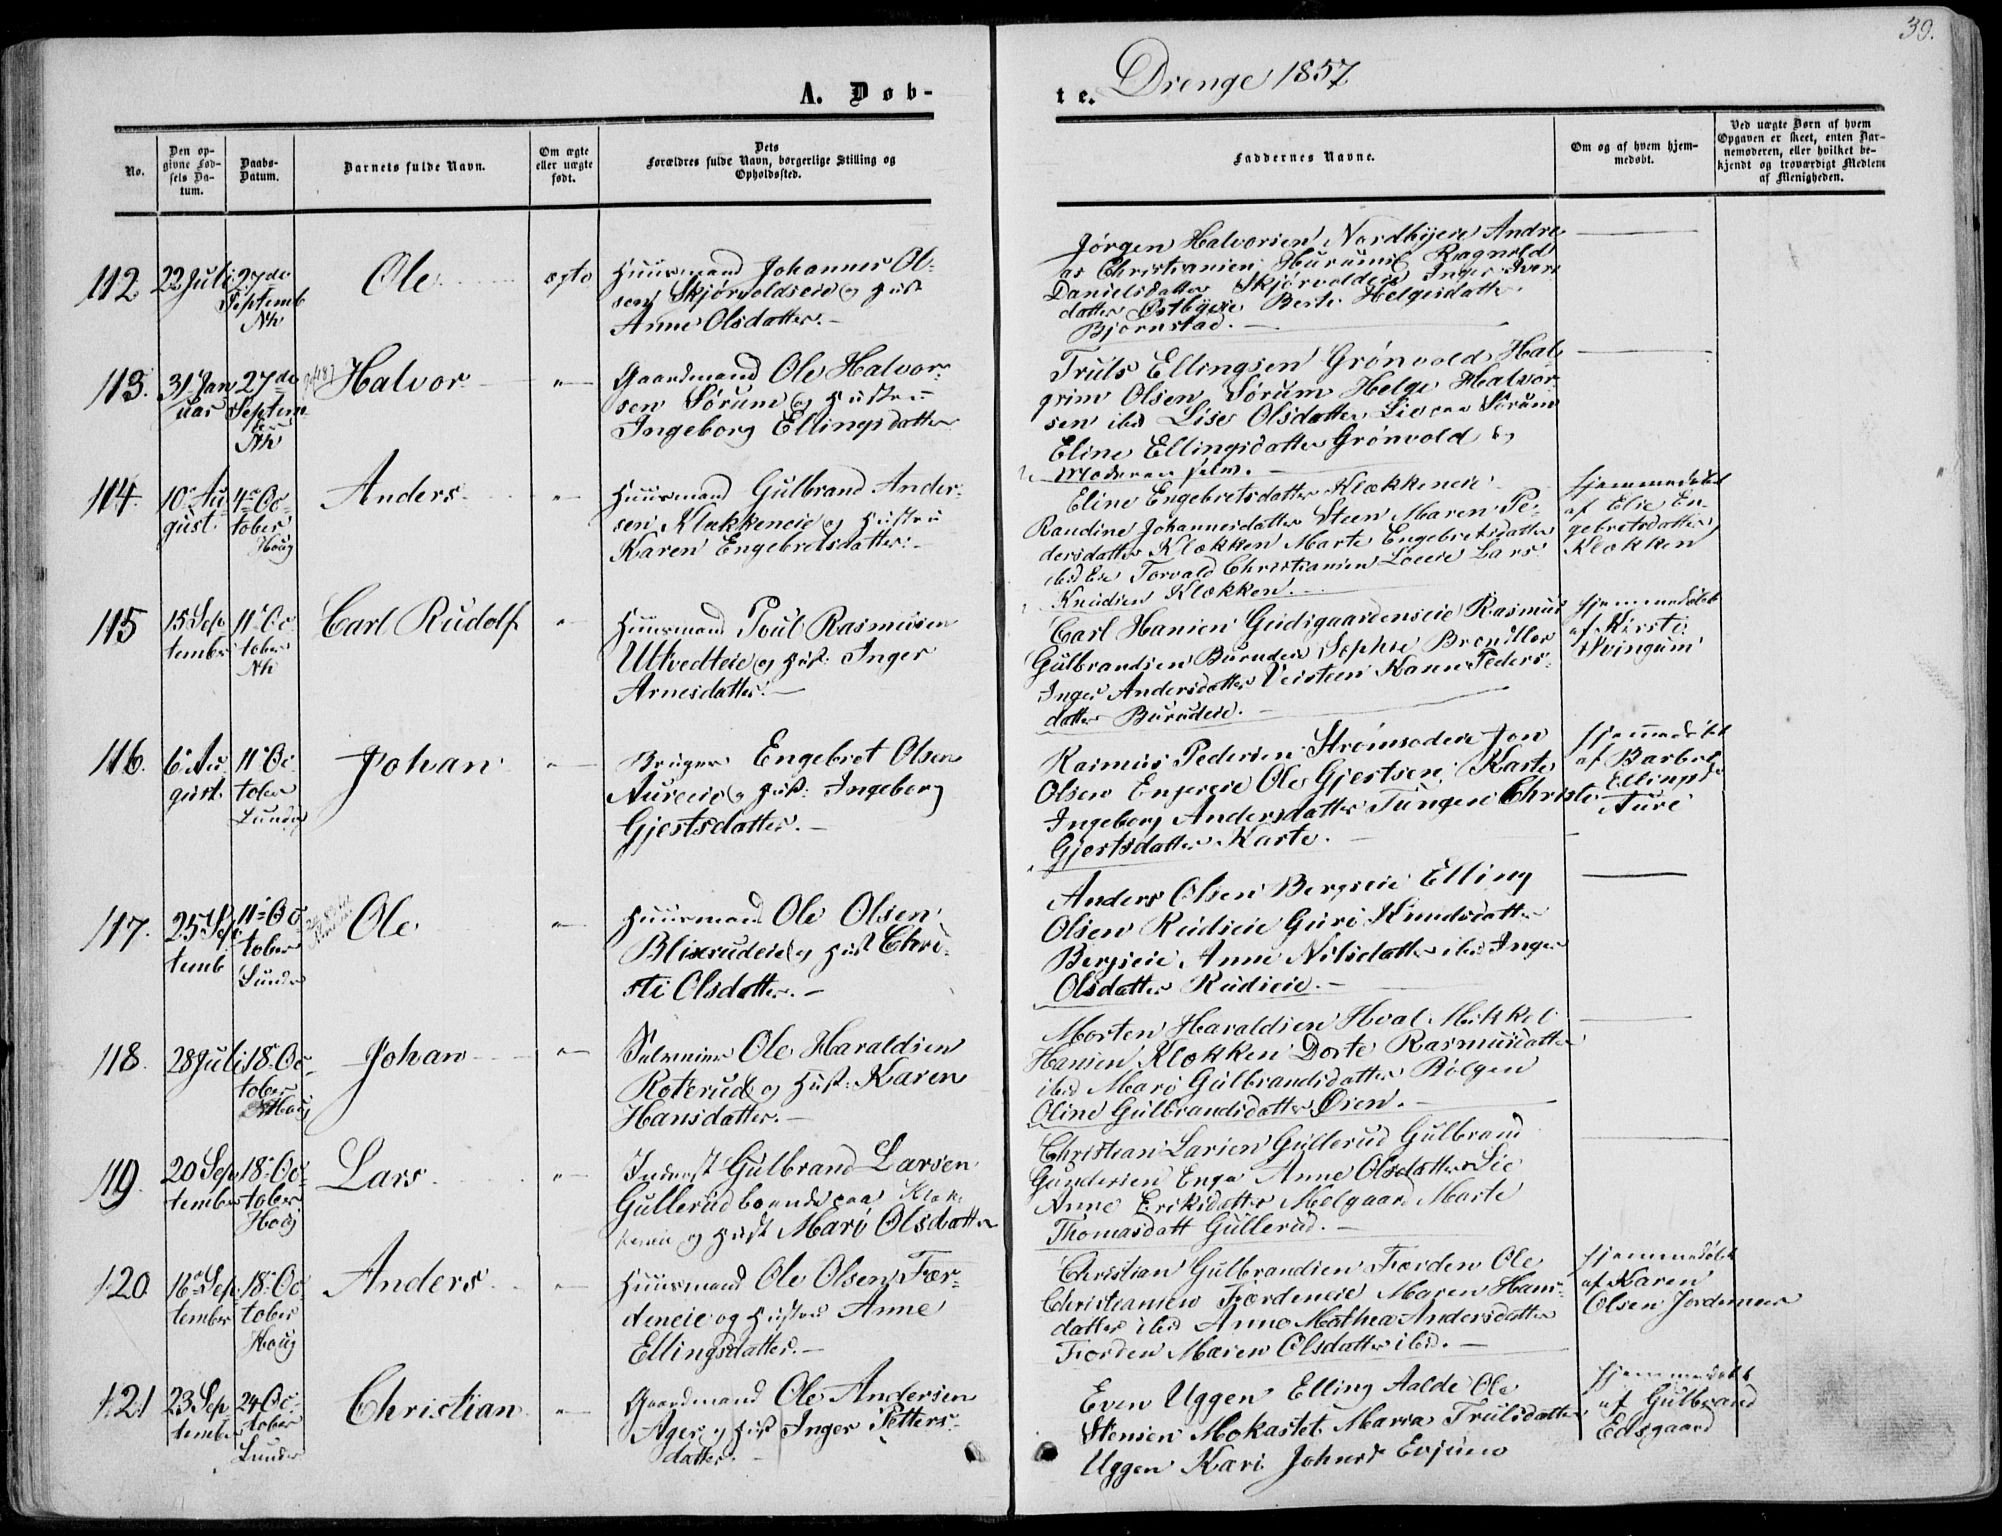 39.
A. Døb-
te. Drenge 1857
No.
Den op-
givne Fød-
sels Da-
tum.
Daabs-
Datum.
Barnets fulde Navn.
Om ægte
eller uægte
født.
Dets
Forældres fulde Navn, borgerlige Stilling og
Opholdssted.
Faddernes Navne.
Om og af hvem hjem-
medøbt.
Ved uægte Børn af hvem
Opgaven er skeet, enten Bar-
nemoderen, eller hvilket be-
kjendt og troværdigt Medlem
af Menigheden.
112.
22 Juli
27de
Septemb
Nh
Ole
ægte
Huusmand Johannes Ol-
sen Skjørvoldseie og Hust
Anne Olsdatter.
Jørgen Halvorsen Nordbyeie Andre
as Christiansen Hurum Ragnild
Danielsdatter Skjørvoldeie Inger Ivers
datter Østbyeie Berte Helgesdatter
Bjørnstad.
113.
31 Jan
uar
27de
Septem
ber
Nh
Halvor
"
Gaardmand Ole Halvor-
sen Sørum og Hustru
Ingeborg Ellingsdatter
Truls Ellingsen Grønvold Hal
grim Olsen Sørum Helge Halvor-
sen ibd Lise Olsdatter Sørum
Eline Ellingsdatter Grønvold og
Moderen selv.
114.
10 Au
gust.
4 Oc
tober
Houg
Anders
"
Huusmand Gulbrand Ander-
sen Klækkeneie og Hustru
Karen Engebretsdatter.
Eline Engebretsdatter Klækkeneie
Randine Johannesdatter Steen Maren Pe-
dersdatter Klækken Marte Engebretsdatter
ibd Eie Torvald Christiansen Loeeie Lars
Knudsen Klækken.
Hjemmedøbt
af Elie En-
gebretsdatter
Klækken
115
15 Sep
tember
11 Oc
tober
Nh
Carl Rudolf
"
Huusmand Poul Rasmusen
Ultvedteie og Hust: Inger
Arnesdatter.
Carl Hansen Gudsgaardenseie Rasmus
Gulbrandsen Burudeie Sophie Brændler
Inger Andersdatter Veisteen Karen Peders-
datter Burudeie.
Hjemmedøbt
af Kirsti
Svingum
116.
6 Au
gust.
11 Oc
tober
Lunder
Johan
"
Bruger Engebret Olsen
Aureeie og Hust: Ingeborg
Gjestsdatter.
Rasmus Pedersen Strømsodeie Jon
Olsen Engereie Ole Gjestsen Karte
Ingeborg Andersdatter Tungeie Christi
Gjertsdatter Karte.
Hjemmedøbt
af Barbro
Ellingsd
Aure
117.
25 Sep
temb
11 Oc
tober
Lunder
Ole
"
Huusmand Ole Olsen
Blixerudeie og Hust Chri-
sti Olsdatter.
Anders Olsen Bergseie Elling
Olsen Rudseie Guro Knudsdatter
Bergseie Anne Nilsdatter ibd Inger
Olsdatter Rudseie.
118.
28 Juli
18 Oc
tober
Houg
Johan
"
Selveeier Ole Haraldsen
Roterud og Hust: Karen
Hansdatter.
Morten Haraldsen Hval Mikkel
Hansen Klækken Dorte Rasmusdatter
ibid Mari Gulbrandsdatter Bølgen
Oline Gulbrandsdatter Øien.
119.
20 Sep
tember
18 Oc
tober
Houg
Lars
"
Inderst Gulbrand Larsen
Gullerud boende paa Klæk
keneie og Hust Mari Olsdatter
Christian Larsen Gullerud Gulbrand
Gundersen Enga Anne Olsdatter Lie
Anne Eriksdatter Melgaard Marte
Thomasdatt Gullerud.
120
16 Sep
tember
18 Oc
tober
Houg
Anders
"
Huusmand Ole Olsen Fær-
deneie og Hustru Anne
Ellingsdatter.
Christian Gulbrandsen Færden Ole
Christiansen Færdeneie Maren Hans
datter ibid Anne Mathea Andersdatter
Færden Maren Olsdatter ibid.
Hjemmedøbt
af Karen
Olsen Jordemor
121
23 Sep
tember
24 Oc
tober
Lunder
Christian
"
Gaardmand Ole Andersen
Ager og Hust Inger Petters
datter.
Even Uggen Elling Aalde Ole
Stensen Mokastet Maria Trulsdatter
Uggen Kari Johnsd Evjuno
Hjemmedøbt
af Gulbrand
Edsgaard